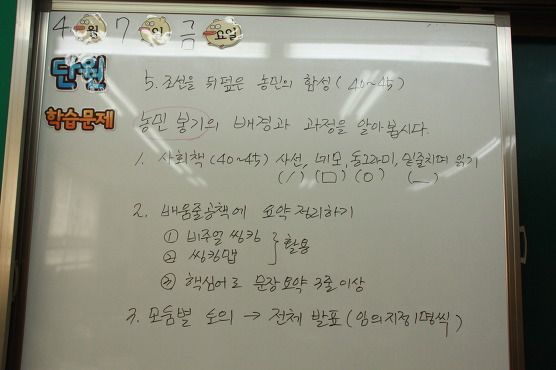 4 월 7 일 금 요일
단원 5. 조선을 뒤덮은 농민의 함성 (40~45)
학습문제 농민 봉기의 배경과 과정을 알아봅시다.
1. 사회책 (40~45) 사선, 네모, 동그라미, 밑줄치며 읽기
(/) (□) (○) (_)
2. 배움줄공책에 요약 정리하기
① 비주얼 씽킹
② 씽킹맵 } 활용
③ 핵심어로 문장요약 3줄이상
3. 모둠별 토의 → 전체 발표 (임의지정 1명씩)